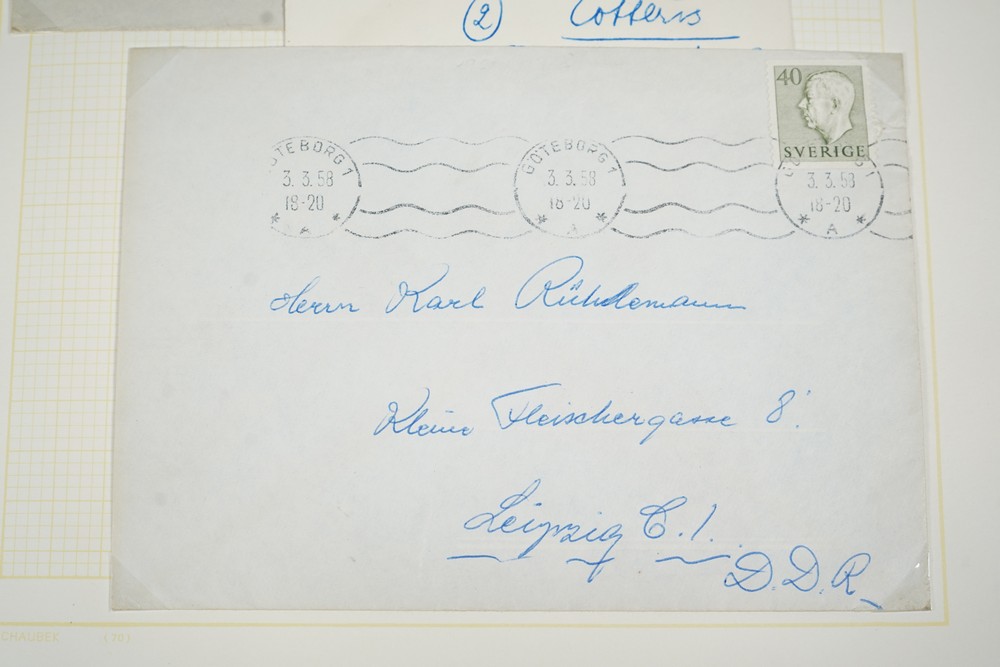 ② Cotteris
40
SVERIGE
GÖTEBORG 1
3. 3. 58
18-20
A
GÖTEBORG 1
3. 3. 58
18-20
A
3. 3. 58
18-20
A
Herrn Karl Rühdemann
Kleine Fleischergasse 8.
Leipzig C. 1.
D. D. R.
SCHAUBEK (70)